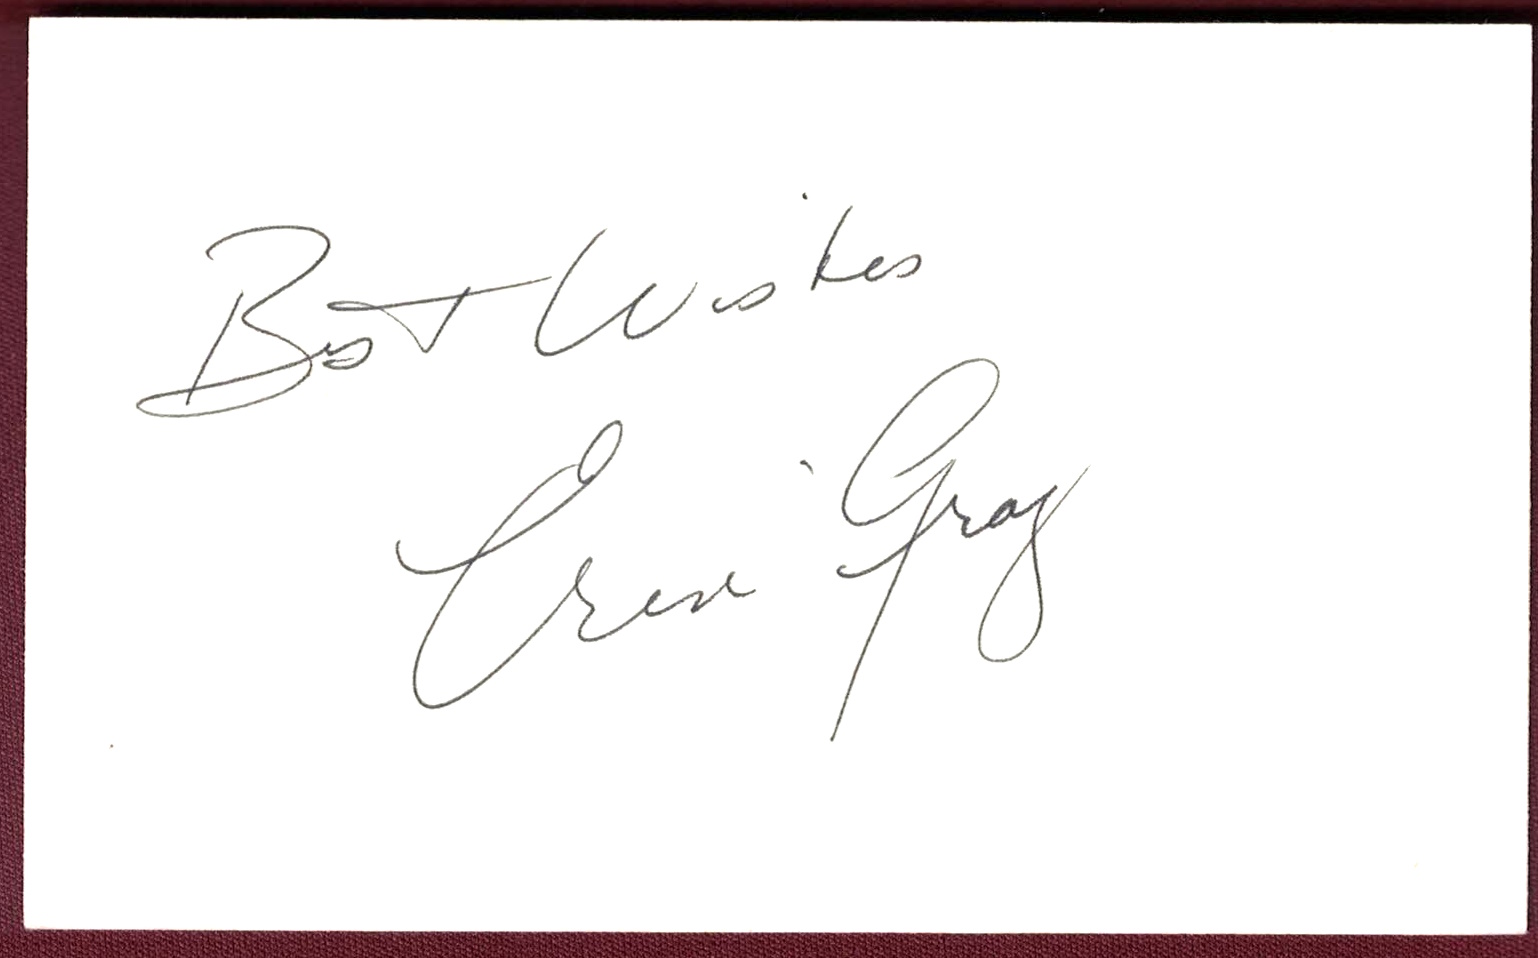 Best Wishes
Erin Gray